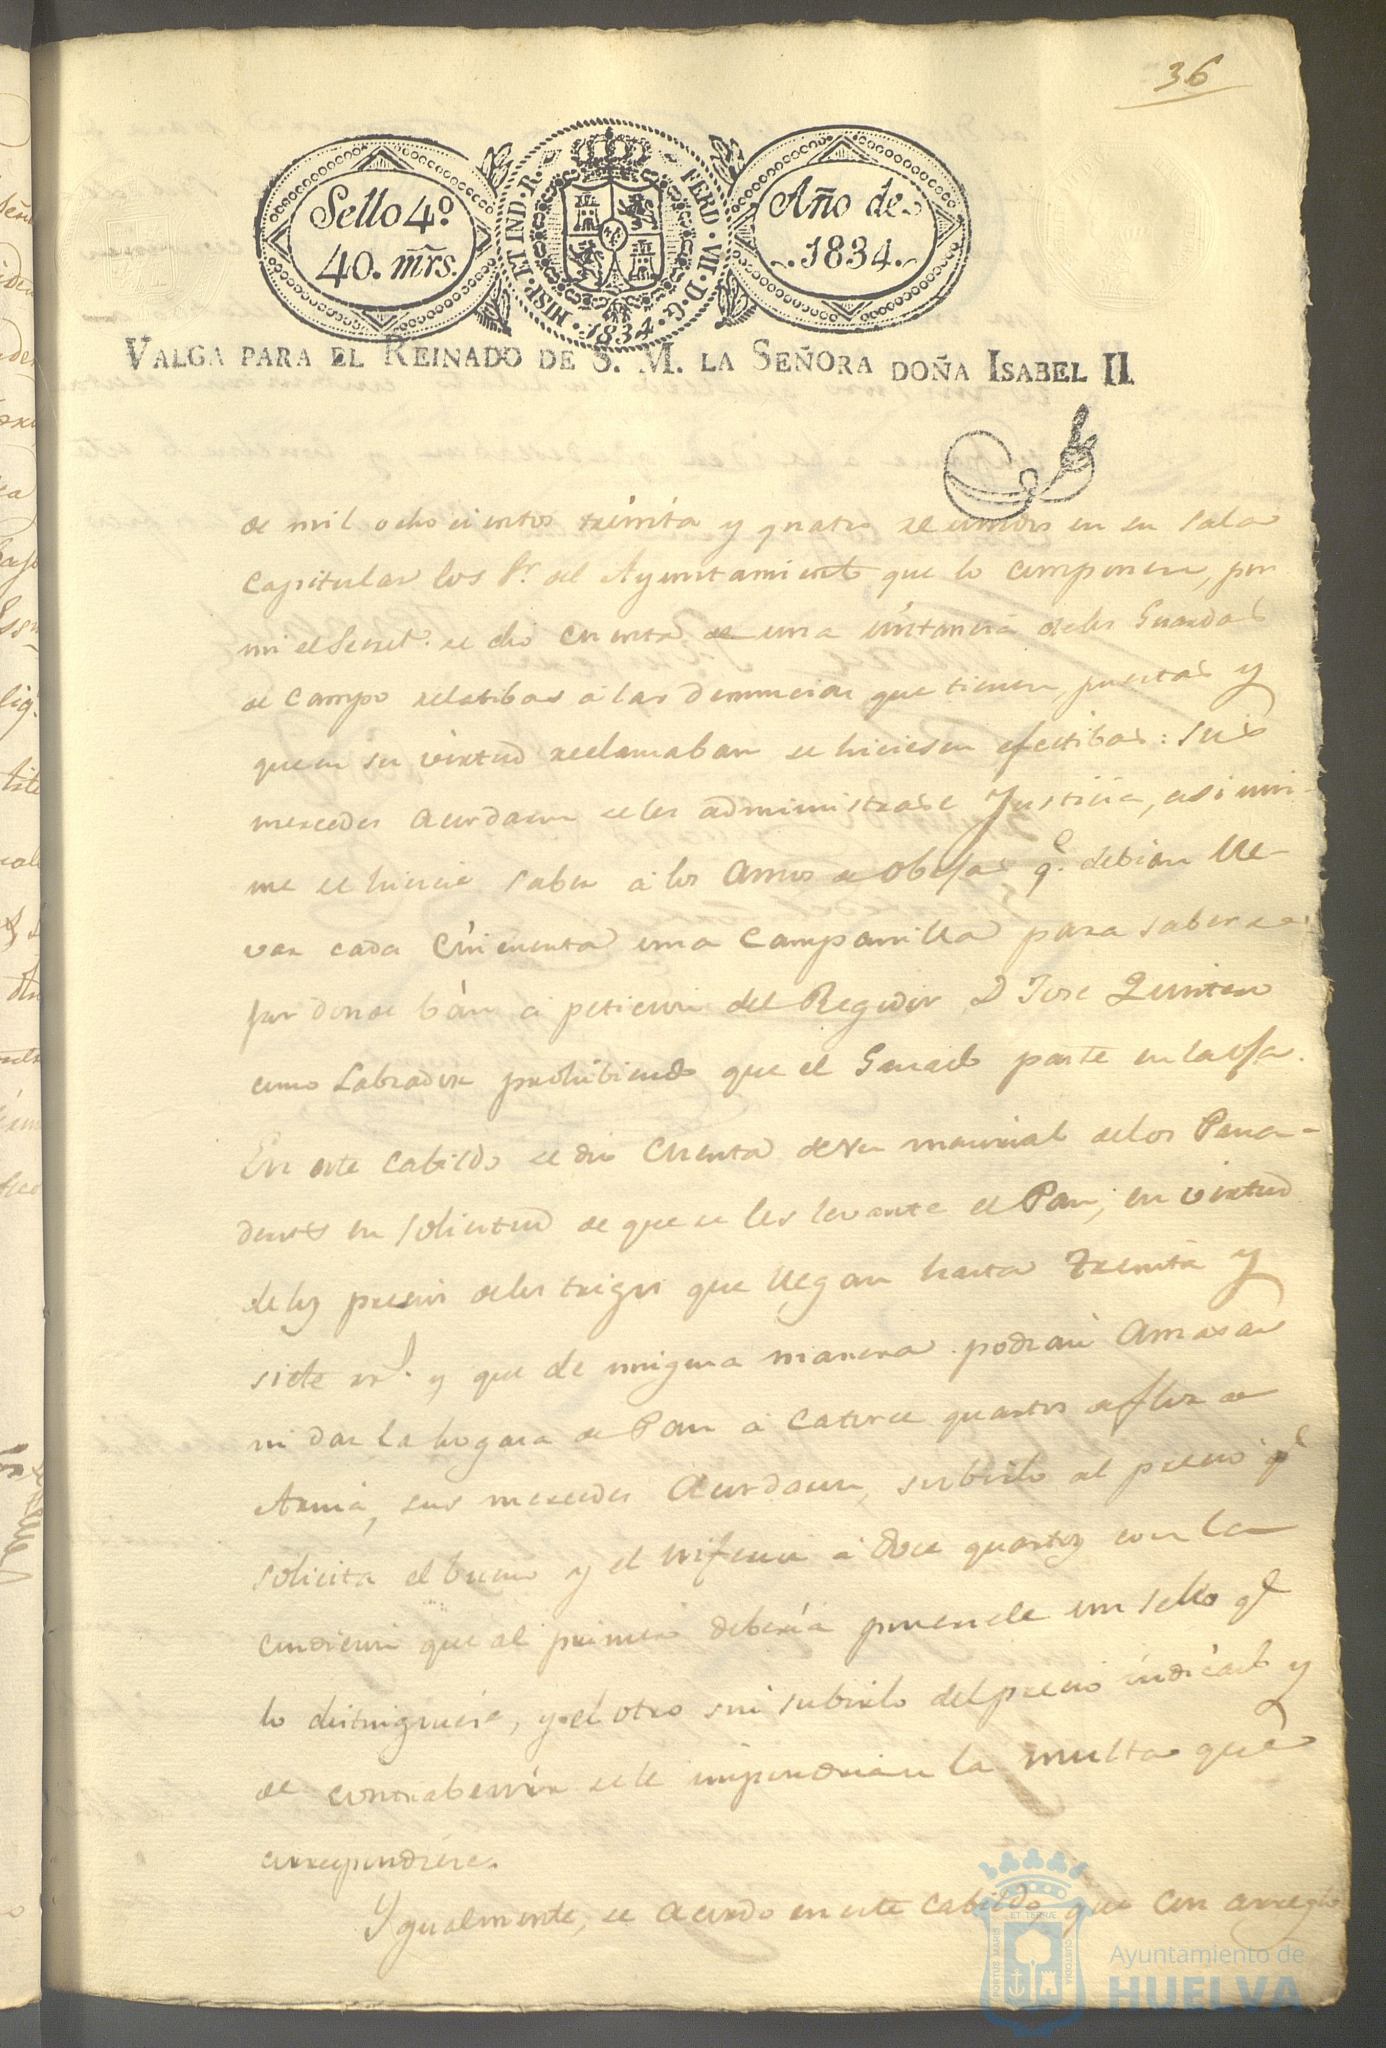 36
Sello 4º
40. mrs.
HISP. ET IND. R. FERD. VII. D. G. 1834.
Año de
1834.
VALGA PARA EL REINADO DE S. M. LA SEÑORA DOÑA ISABEL II.
de mil ochocientos treinta y quatro reunidos en su Sala
Capitular los Sr. del Ayuntamiento que lo componen, por
mi el Secret.º se dio cuenta de una instancia de los Guardas
de Campo relatibas a las denuncias que tienen puestas y
que en su virtud reclamaban se hiciesen efectibas: sus
mercedes acordaron se les administrase Justicia, asi mi-
mo se hiciese saber a los Amos de Obejas q.e debian lle-
var cada Cincuenta una Campanilla para saberse
por donde bán a peticion del Regidor D Jose Quintero
como Labrador prohibiendo que el Ganado paste en
En este Cabildo se dio Cuenta de un memorial de los Pana-
deros en solicitud de que se les levante el Pan, en virtud
de los precios de los trigos que llegan hasta treinta y
siete rr.s y que de ninguna manera podrán Amasar
ni dar la hogasa de Pan a Catorce quartos de flor de
Arina, sus mercedes Acordaron, subirlo al precio q.e
solicita el bueno y el inferior a doce quartos con la
condicion que al primero debería ponersele un sello q.e
lo distinguiese, y el otro sin subirlo del precio indicado y
de contrabenir se le impondrian la multa que
correspondiere.
Ygualmente, se acordo en este Cabildo, que con arreglo
PORTUS MARIS ET TERRÆ CUSTODIA
Ayuntamiento de
HUELVA